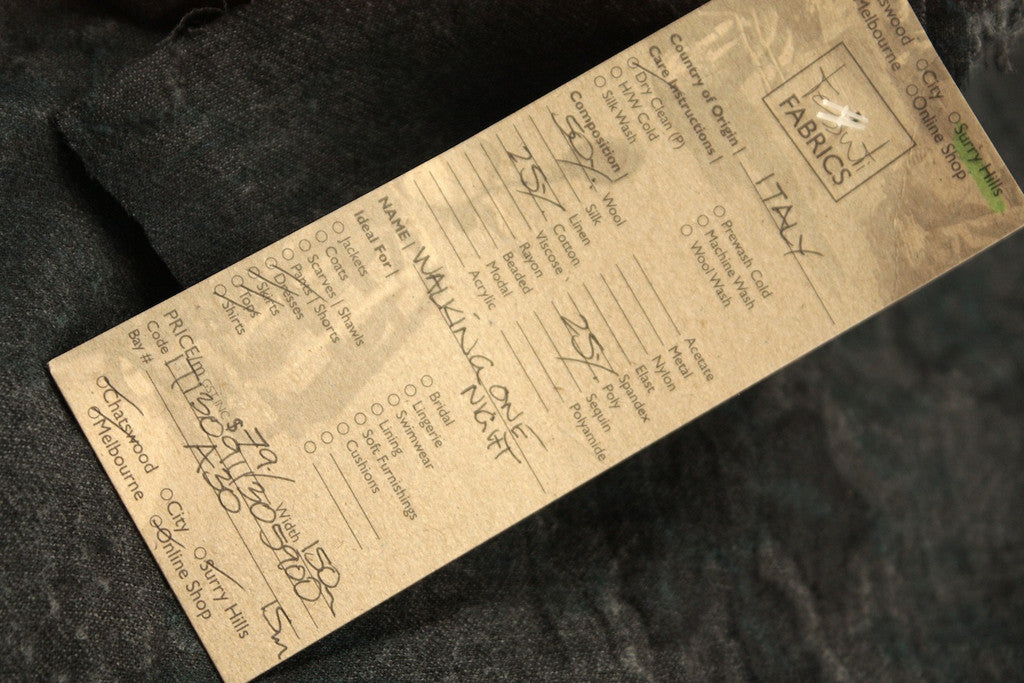 Chatswood
Melbourne
City
Online Shop
Surry Hills
Tessuti
FABRICS
Country of Origin | ITALY
Care Instructions |
Dry Clean (P)
H/W Cold
Silk Wash
Prewash Cold
Machine Wash
Wool Wash
Composition |
50% Wool
Silk
Linen
25% Cotton
Viscose
Rayon
Beaded
Modal
Acrylic
Acetate
Metal
Nylon
Elast
Spandex
25% Poly
Sequin
Polyamide
NAME | WALKING ONE
NIGHT
Ideal For |
Jackets
Coats
Scarves | Shawls
Pants | Shorts
Dresses
Skirts
Tops
Shirts
Bridal
Lingerie
Swimwear
Lining
Soft Furnishings
Cushions
PRICE/m GST INC $79/ Width 150cm
Code
Bay # A30 15m
Chatswood
Melbourne
City
Online Shop
Surry Hills